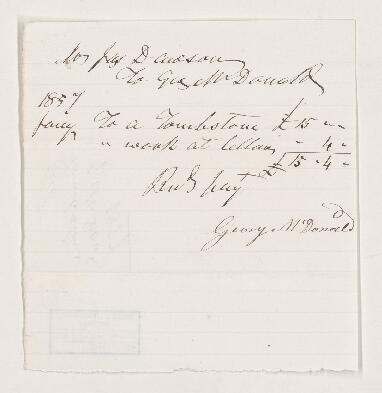 Mr Jas Dawson
To Geo McDonald
1857
Jany To a Tombstone £15 " "
" work at Cellar " 4 "
£15 " 4 "
Recd payt
George McDonald